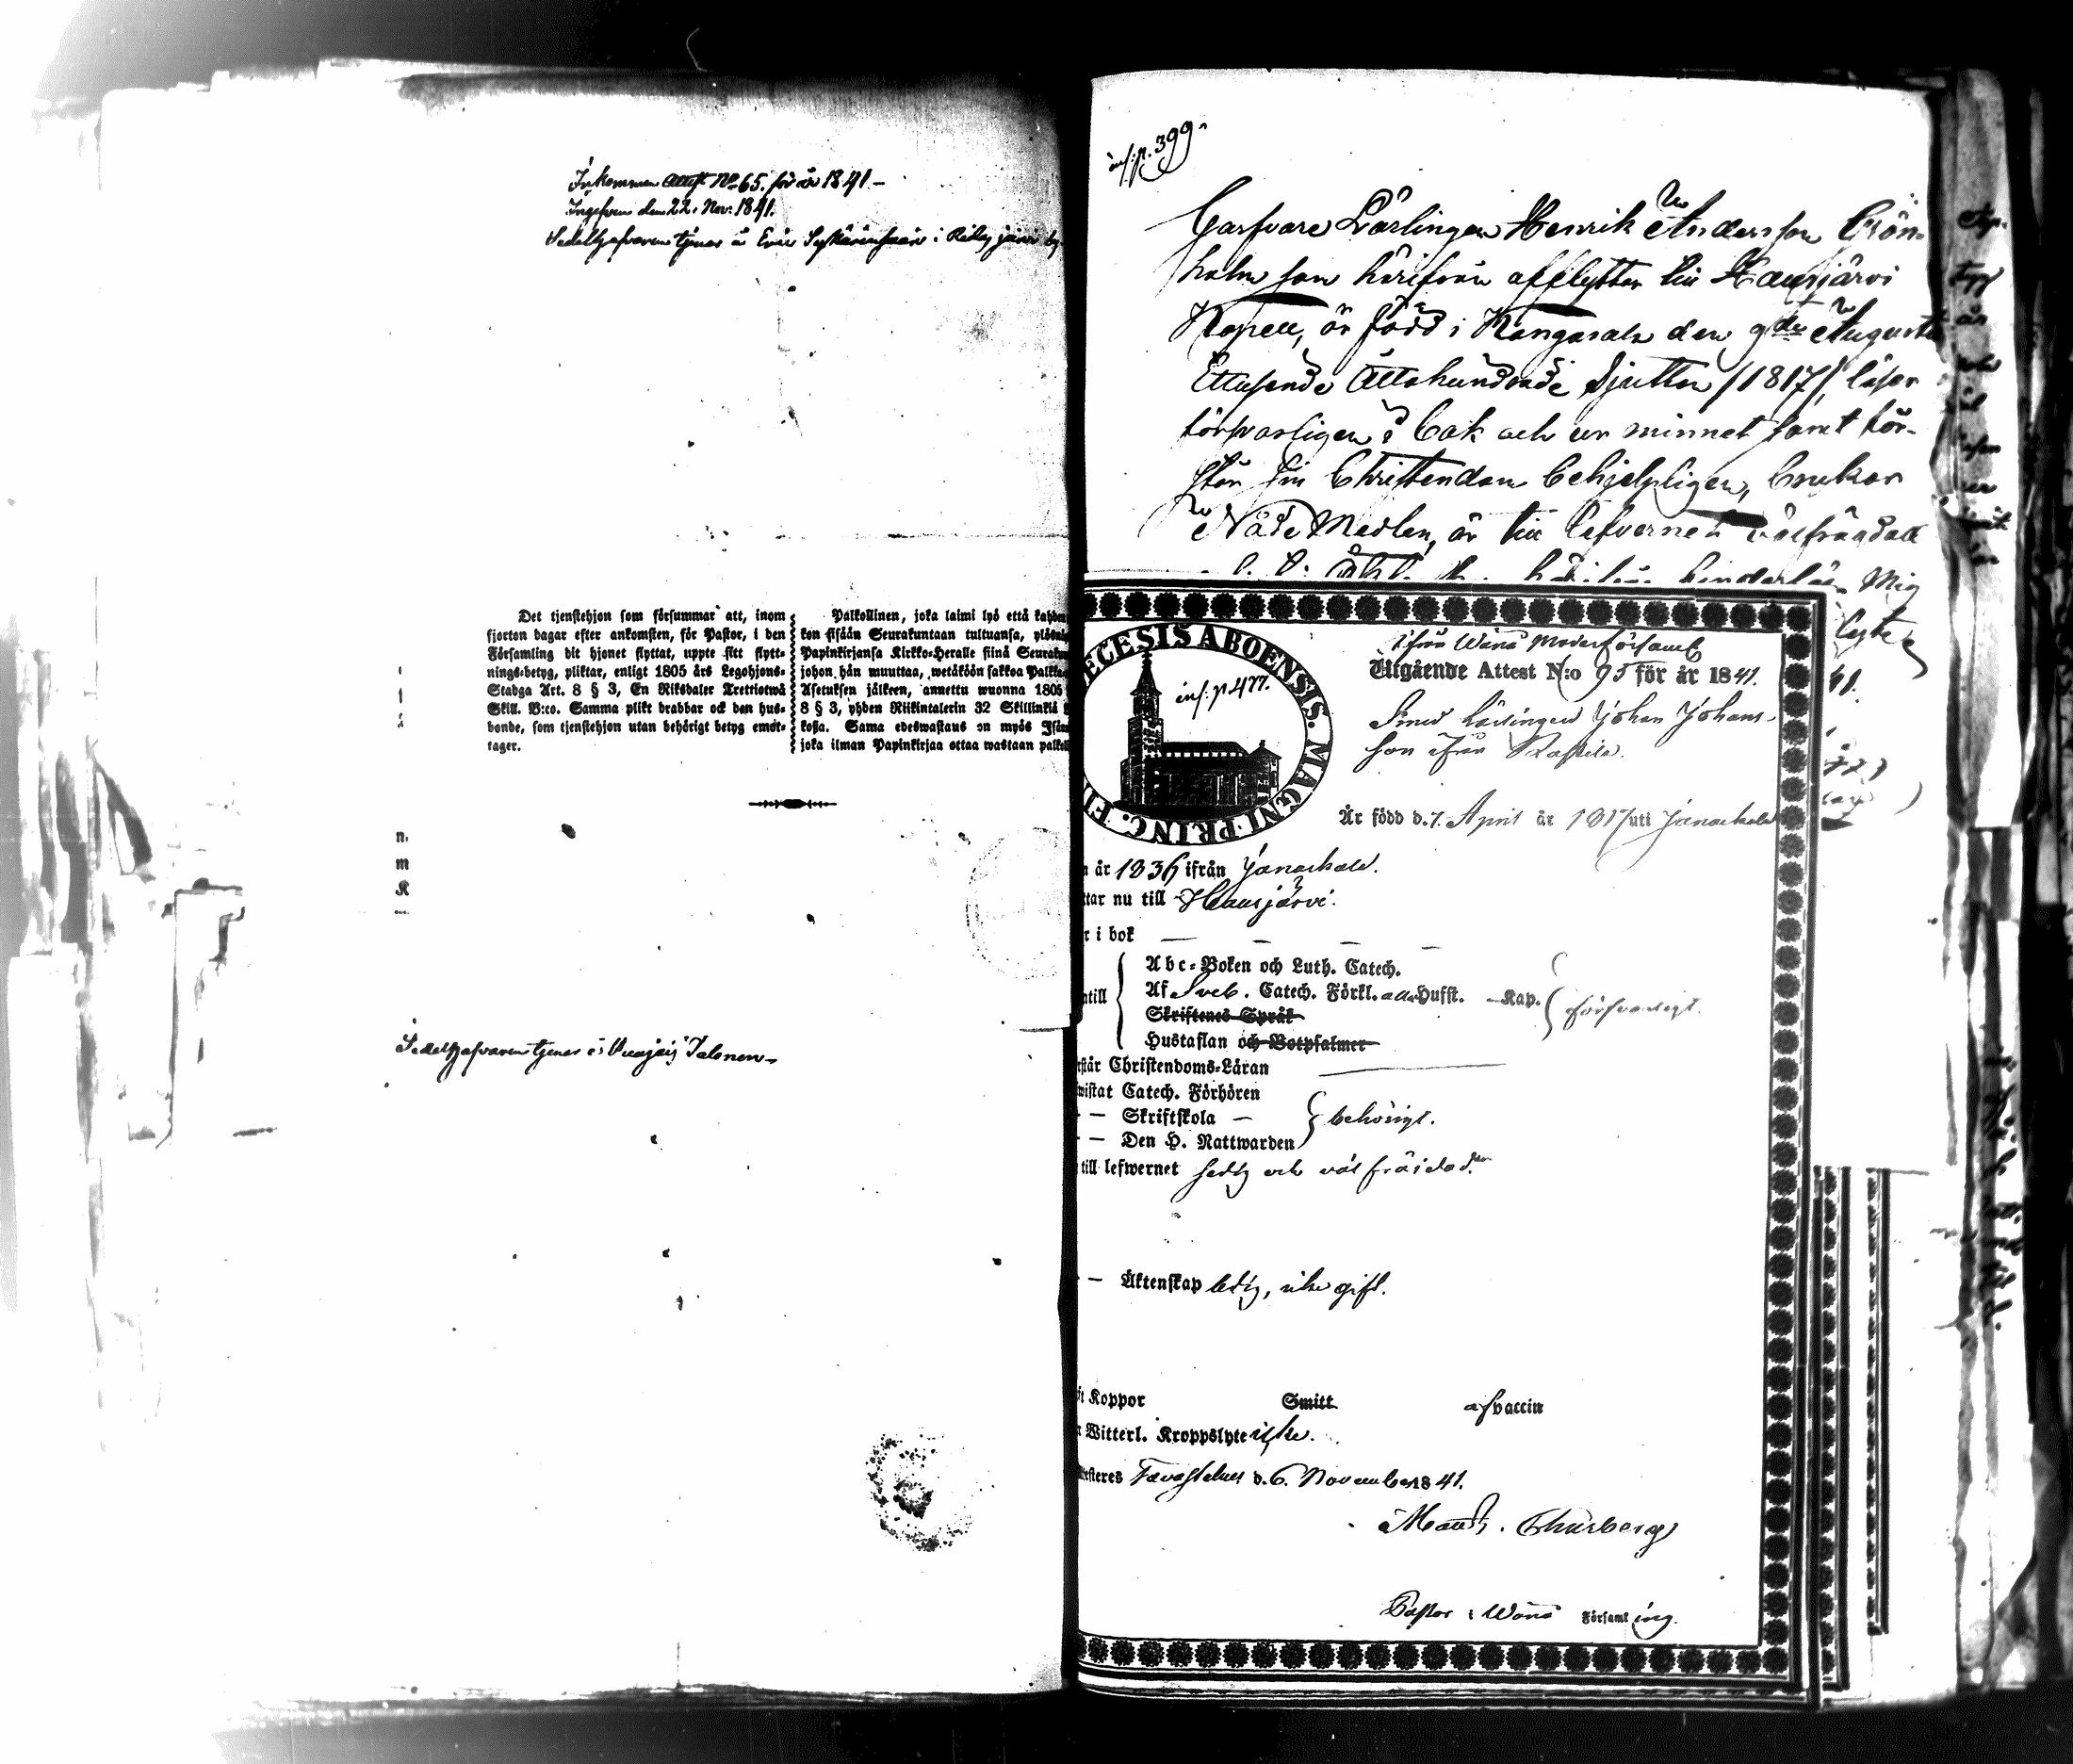 Inkommen Attest No 65. för år 1841.-
Ingifven den 22. Nov: 1841.
Sedelhafvaren tjenar å Erik i by
Det tjenstehjon som försummar att, inom
fjorton dagar efter ankomsten, för Pastor, i den
Församling dit hjonet flyttat, uppte sitt flytt-
nings-betyg, pliktar, enligt 1805 års Legohjons-
Stadga Art. 8 § 3, En Riksdaler Trettiotwå
Skill. B:co. Samma plikt drabbar ock den hus-
bonde, som tjenstehjon utan behörigt betyg emot-
tager.
Palkollinen, joka laimi lyö että kahden
kon sisään Seurakuntaan tultuansa, ylösnä
Papinkirjansa Kirkko-Heralle siinä Seuraku
johon hän muuttaa, wetäköön sakkoa Palkka
Asetuksen jälkeen, annettu wuonna 1805
8 § 3, yhden Riikintalerin 32 Skillinkiä
koßa. Sama edeswastaus on myös Isän
joka ilman Papinkirjaa ottaa wastaan palkol
n.
m
K
Sedelhafvaren tjenar å Talonen-
inf: p. 399.
Garfvare Lärlingen Henrik Andersson Grön-
holm som härifrån afflyttar till Hausjärvi
Kapell, är född i Kangasala den 9de Augusti
Ettusende Åttahundrade Sjutton /1817/, läser
försvarligen i bok och ur minnet samt för-
står sin Christendom behjelpligen, brukar
Nåde Medlen, är till lefvernet välfrägdad
Mig
ECESIS ABOENSIS. MAGNI PRINC. FI
inf: p 477.
ifrån Wånå Moderförsaml
Utgående Attest N:o 95 för år 1841.
Smed lärlingen Johan Johans-
son ifrån
Är född d. 7. April år 1817 uti Janackala
n år 1836 ifrån Janackala.
ttar nu till Hausjärvi.
r i bok — — — —
ntill
Abc-Boken och Luth. Catech.
Af Sveb. Catech. Förkl. alla Hufst. -Kap.
Skriftenes Språk
Hustaflan och Botpsalmer
försvarligt.
rstår Christendoms-Läran
wistat Catech. Förhören
- — Skriftskola —
- — Den H. Nattwarden
behörigt.
till lefwernet sedig och väl fräjdad.
- — Äktenskap ledig, icke gift.
ft Koppor Smitt af vaccin
n Witterl. Kroppslyte icke.
ttesteres Tavastehus d. 6. November 1841.
Thurberg
Pastor i Wånå Församling.